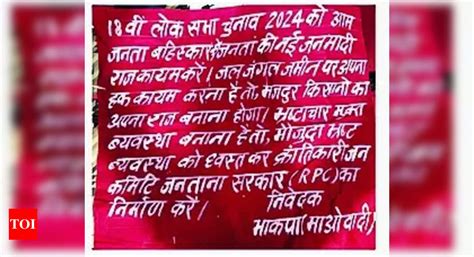 18वीं लोक सभा चुनाव 2024 को आम
जनता बहिस्कार जनता की नई जनमादी
राज कायम करें। जल जंगल जमीन पर अपना
हक कायम करना है तो, मजदुर किसानो का
अपना राज बनाना होगा। भ्रष्टाचार मुक्त
व्यवस्था बनाना है तो, मौजुदा भ्रष्ट
व्यवस्था को ध्वस्त कर क्रांतिकारी जन
कमिटि जनताना सरकार (RPC) का
निर्माण करें।
निवेदक
भाकपा (माओवादी)
TOI